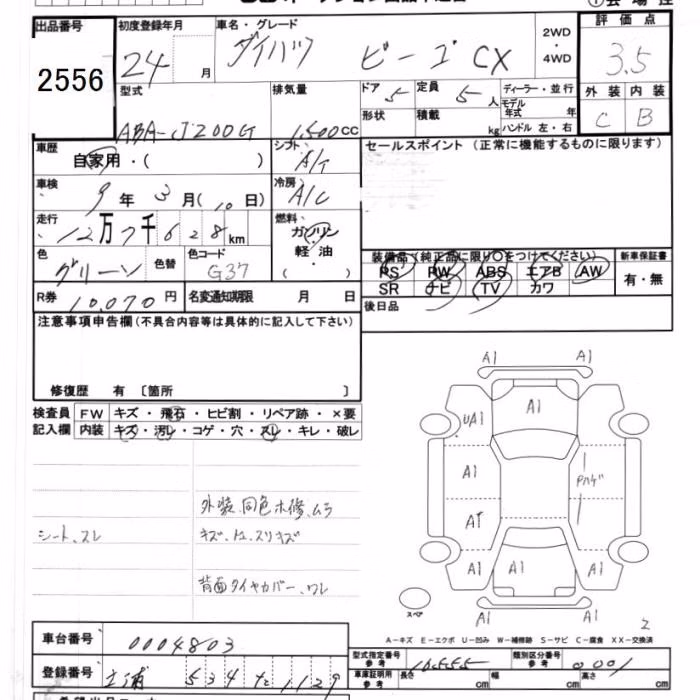 出品番号 初度登録年月 車名・グレード 2WD ・ 4WD 評価点
2556 24 月 ダイハツ ビーゴ CX 3.5
型式 排気量 ドア 5 定員 5人 ディーラー・並行 外装 内装
ABA-J200G 1,500cc 形状 積載 kg モデル年式 年 C B
ハンドル 左・右
車歴 シフト セールスポイント(正常に機能するものに限ります)
自家用・( ) A/T
車検 冷房
9年 3月(10日) A/C
走行 燃料
12万7千628km ガソリン
軽油
・( )
色 色替 色コード 装備品(純正品に限り○をつけてください) 新車保証書
グリーン G37 PS PW ABS エアB AW 有・無
SR ナビ TV カワ
R券 10,070円 名変通知期限 月 日 後日品
注意事項申告欄(不具合内容等は具体的に記入して下さい)
修復歴 有 〔箇所 〕
検査員 FW キズ・飛石・ヒビ割・リペア跡・×要
記入欄 内装 キズ・汚レ・コゲ・穴・スレ・キレ・破レ
A1
A1
A1
UA1
A1
A1
A1
A1
A1
A1
A1
外装、同色ホ修、ムラ
シート、スレ
背面タイヤカバー、ワレ
スペア
2
A-キズ E-エクボ U-凹み W-補修跡 S-サビ C-腐食 XX-交換済
車台番号 0004803
型式指定番号 参考 16555 類別区分番号 参考 0001
登録番号 土浦 534 1129
車庫証明用 参考 長さ cm 幅 cm 高さ cm